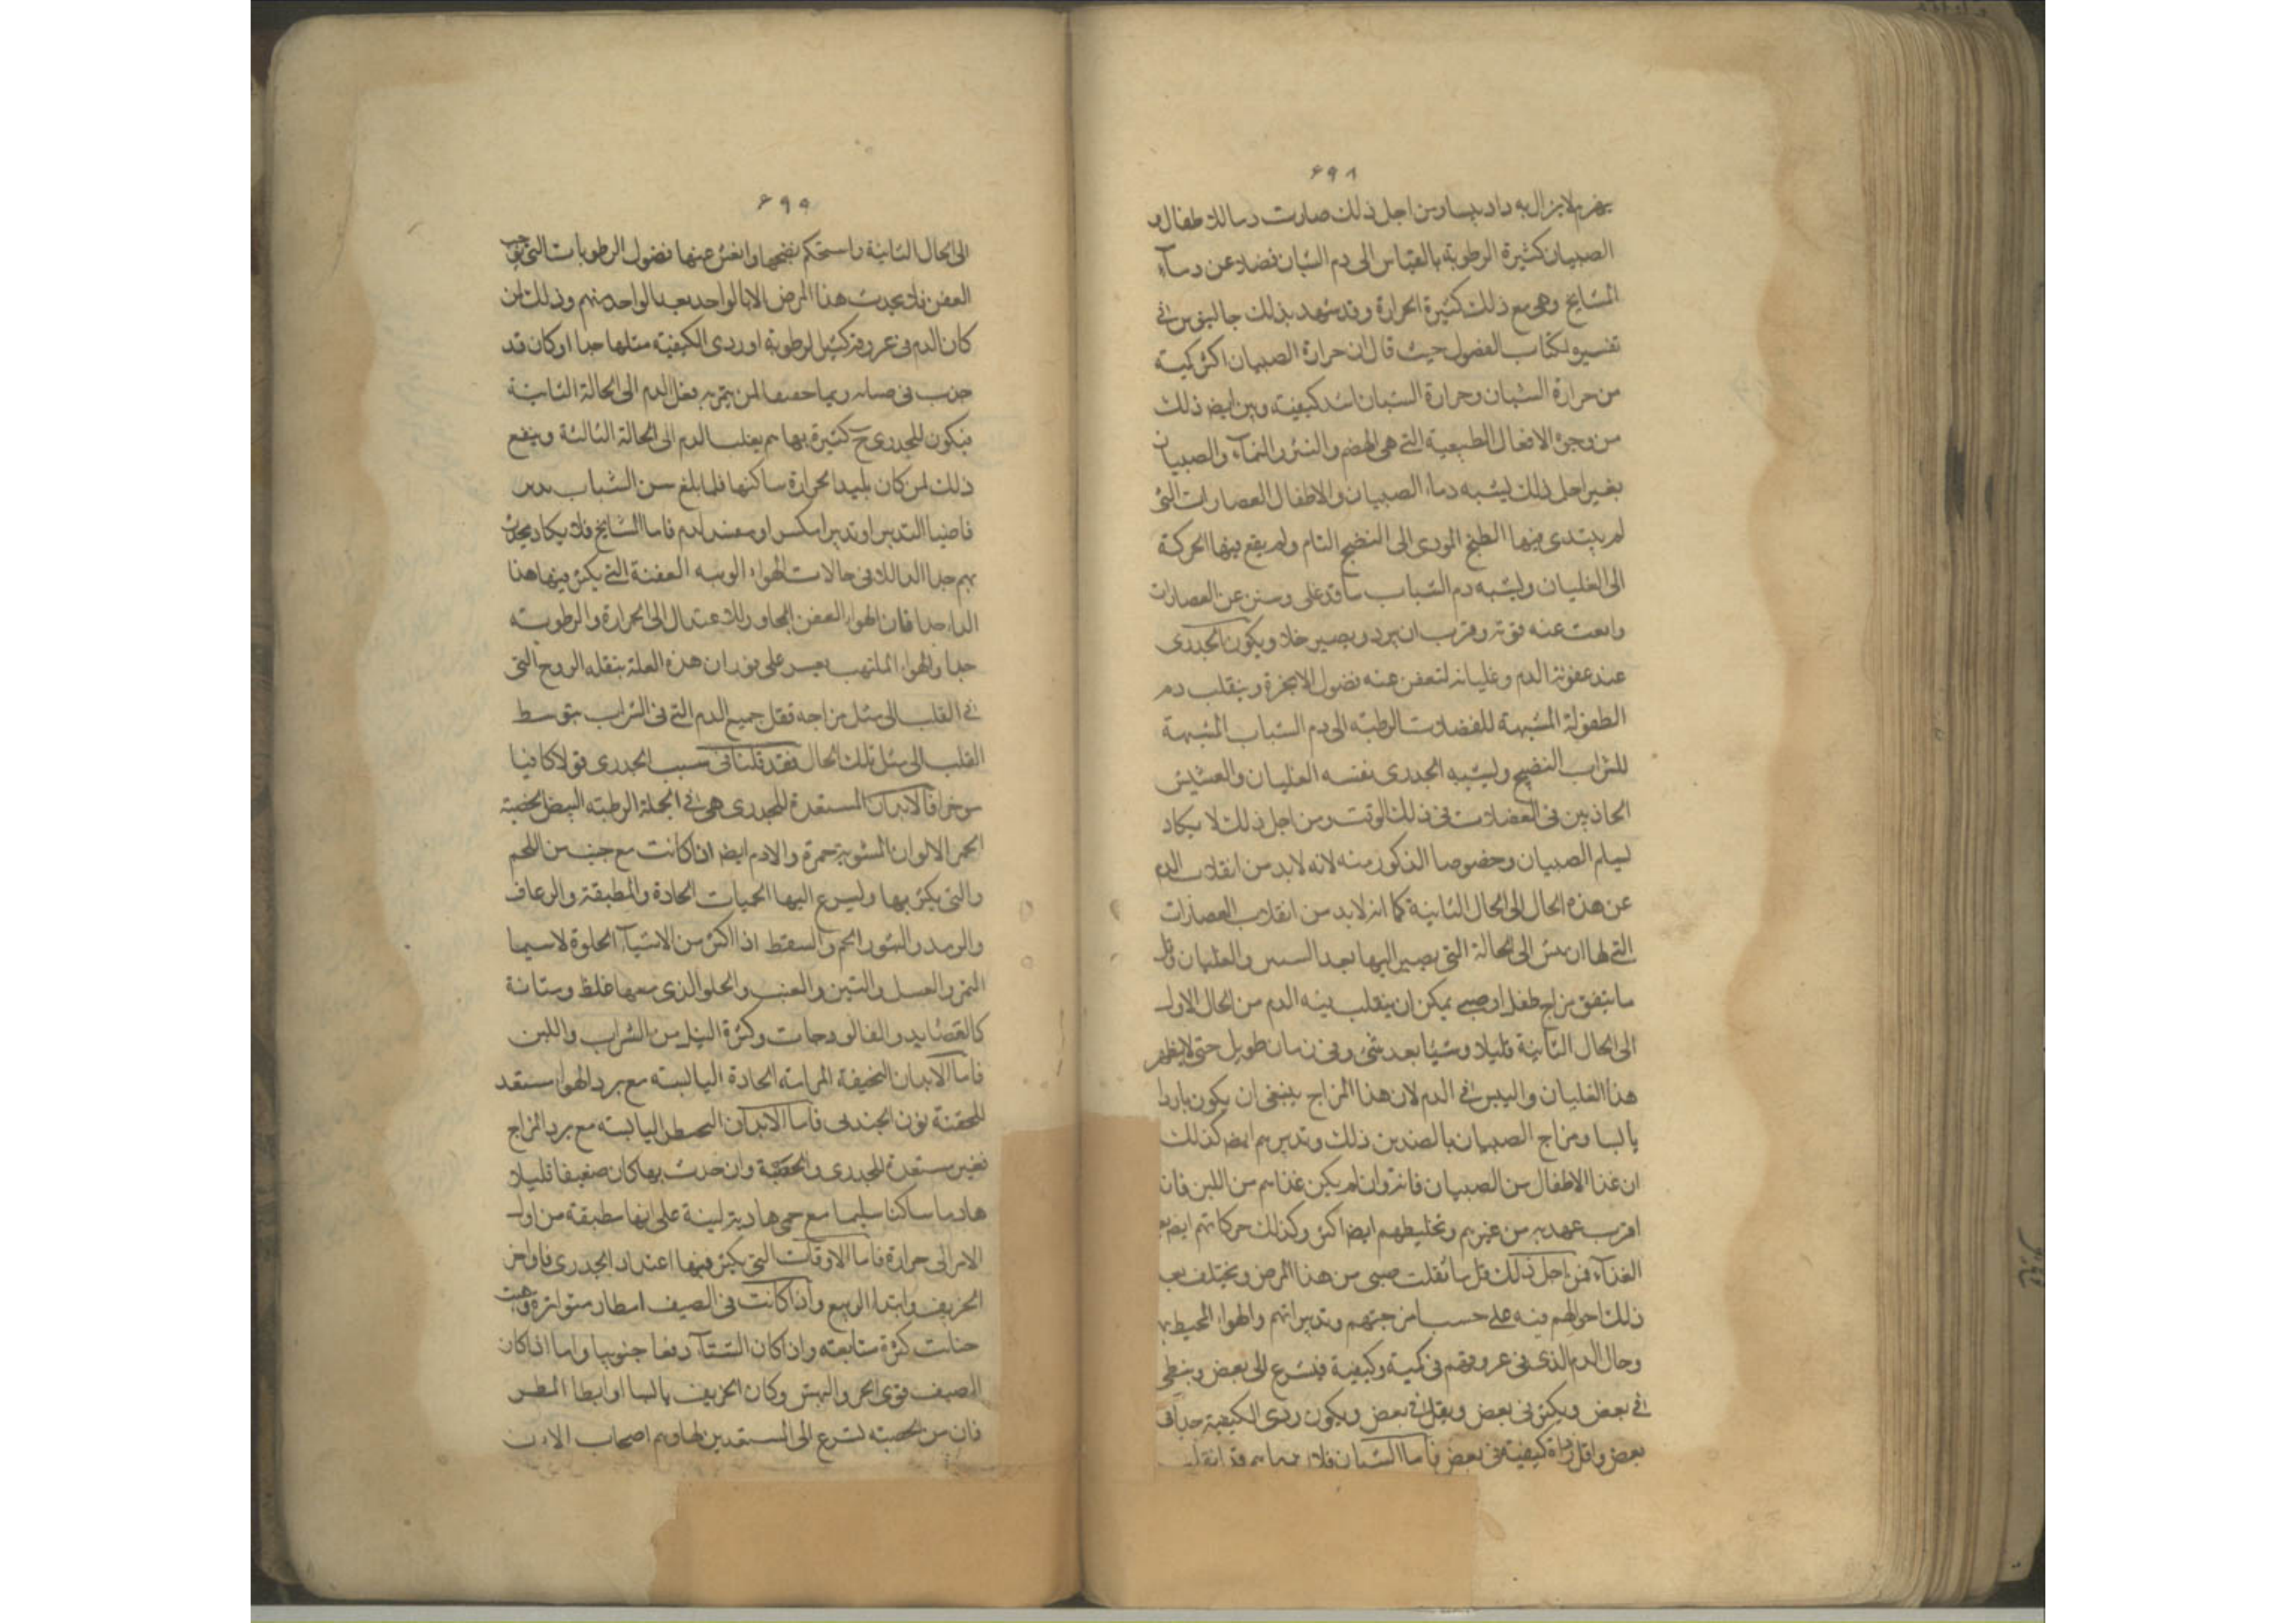 ۶۹۸
يهرم لا يزال به داد يبسا ومن اجل ذلك صارت دما الاطفال و
الصبيان كثيرة الرطوبة بالقياس الى دم الشبان فضلا عن دمآء
المشايخ وهى مع ذلك كثيرة الحرارة وقد شهد بذلك جالينوس فى
تفسيره لكتاب الفصول حيث قال ان حرارة الصبيان اكثر كمية
من حرارة الشبان وحرارة الشبان اشد كيفية وبين ايضا ذلك
من وجوه الافعال الطبيعية التى هى الهضم والنشو والنمآء والصبيان
ذلك يشبه دماء الصبيان والاطفال العصارات التى
لم يبتدى فيها الطبخ المودى الى النضج التام ولم يقع فيها الحركة
الى الغليان ويشبه دم الشباب ما قد غلى ونش عن العصارات
عنه قوته وقرب ان يبرد ويصير خلا ويكون الجدرى
عند عفونة الدم وغليانه لتعفن عنه فضول الابخرة وينقلب دم
الطفولة المشبهة للفضلات الرطبة الى دم الشباب المشبهة
للشراب النضيج ويشبه الجدرى نفسه الغليان والعشيش
الحاذبين فى الفضلات فى ذلك الوقت ومن اجل ذلك لا يكاد
ليسلم الصبيان وخصوصا الذكور منه لانه لابد من انقلاب الدم
عن هذه الحال الى الحال الثانية كما انه لابد من انقلاب العصارات
التى لها ان ينش الى الحالة التى يصير اليها بعد النشيش والغليان وقل
ما يتفق مزاج طفل او صبى يمكن ان ينقلب فيه الدم من الحال الاول
الى الحال الثانية قليلا وشيا بعد شئ وفى زمان طويل حتى لا يظهر
هذا الغليان واليبس فى الدم لان هذا المزاج ينبغى ان يكون باردا
يابسا ومزاج الصبيان بالضد من ذلك وتدبيرهم ايضا كذلك
ان غذا الاطفال من الصبيان فانه وان لم يكن غذاهم من اللبن فان
اقرب عهد به من غيرهم وتخليطهم ايضا اكثر وكذلك حركاتهم ايضا بعد
الغذآء فمن اجل ذلك قل ما تفلت صبى من هذا المرض ويختلف بعد
ذلك احوالهم فيه على حسب امزجتهم وتدبيراتهم والهوا المحيط بهم
وحال الدم الذى فى عروقهم فى كمية وكيفية فيسرع الى بعض ويبطى
فى بعض ويكثر فى بعض ويقل فى بعض ويكون ردى الكيفية جدا فى
بعض واقل رداة كيفية فى بعض فاما الشبان فلان دماهم قد انقلب
۶۹۹
الى الحال الثانية واستحكم نضجها وانفش عنها فضول الرطوبات التى توجب
العفن فلا يحدث هذا المرض الا بالواحد بعد الواحد منهم وذلك لمن
كان الدم فى عروقه كثير الرطوبة او ردى الكيفية مثلها جدا او كان قد
جدب فى صباه لم يتم به نقل الدم الى الحالة الثانية
فيكون للجدرى ح كثيرة بها ثم ينقلب الدم الى الحالة الثالثة ويقع
ذلك لمن كان بليد الحرارة ساكنها فلما بلغ سن الشباب
فاما المشايخ فلا يكاد يحدث
بهم جدا الا فى حالات الهواء الوبيه العفنة التى يكثر فيها هذا
الداء جدا فان الهواء العفن المجاوز للاعتدال الى الحرارة والرطوبة
جدا والهواء الملتهب يعين على ثوران هذه العلة بنقله الروح التى
فى القلب الى مثل مزاجه فنقل جميع الدم التى فى الشراب بتوسط
القلب الى مثل تلك الحال فقد قلنا فى سبب الجدرى قولا كافيا
موخرا فالابدان المستعدة للجدرى هى فى الجملة الرطبة البيض الخصبة
الحمر الالوان المشوبة حمرة والادم ايضا ان كانت مع خصب من اللحم
والتى يكثر بها ويسرع اليها الحميات الحادة والمطبقة والرعاف
والرمد والبثور الحمر والسقط اذا اكثر من الاشيآء الحلوة لاسيما
التمر والعسل والتين والعنب والحلو الذى معها غلظ ومتانة
كالعصايد والفالوذجات وكثرة النيل من الشراب واللبن
فاما الابدان النحيفة المرارية الحادة اليابسة مع برد الهوا مستعد
للحصبة دون الجدرى فاما الابدان اليابسة مع برد المزاج
فغير مستعدة للجدرى والحصبة وان حدث بها كان ضعيفا قليلا
هادما ساكنا سليما مع حمى هادية لينة على انها مطبقة من اول
الامر الى حرارة فاما الاوقات التى يكثر فيها اعتداد الجدرى فاواخر
الخريف وابتدا الربيع واذا كانت فى الصيف امطار متواترة وهبت
جنايب كثيرة متتابعة واذا كان الشتآء دفئا جنوبيا واما اذا كان
الصيف قوى الحر واليبس وكان الخريف يابسا او ابطا المطر
فان من الحصبة لتسرع الى المستعدين لها وهم اصحاب الابدان